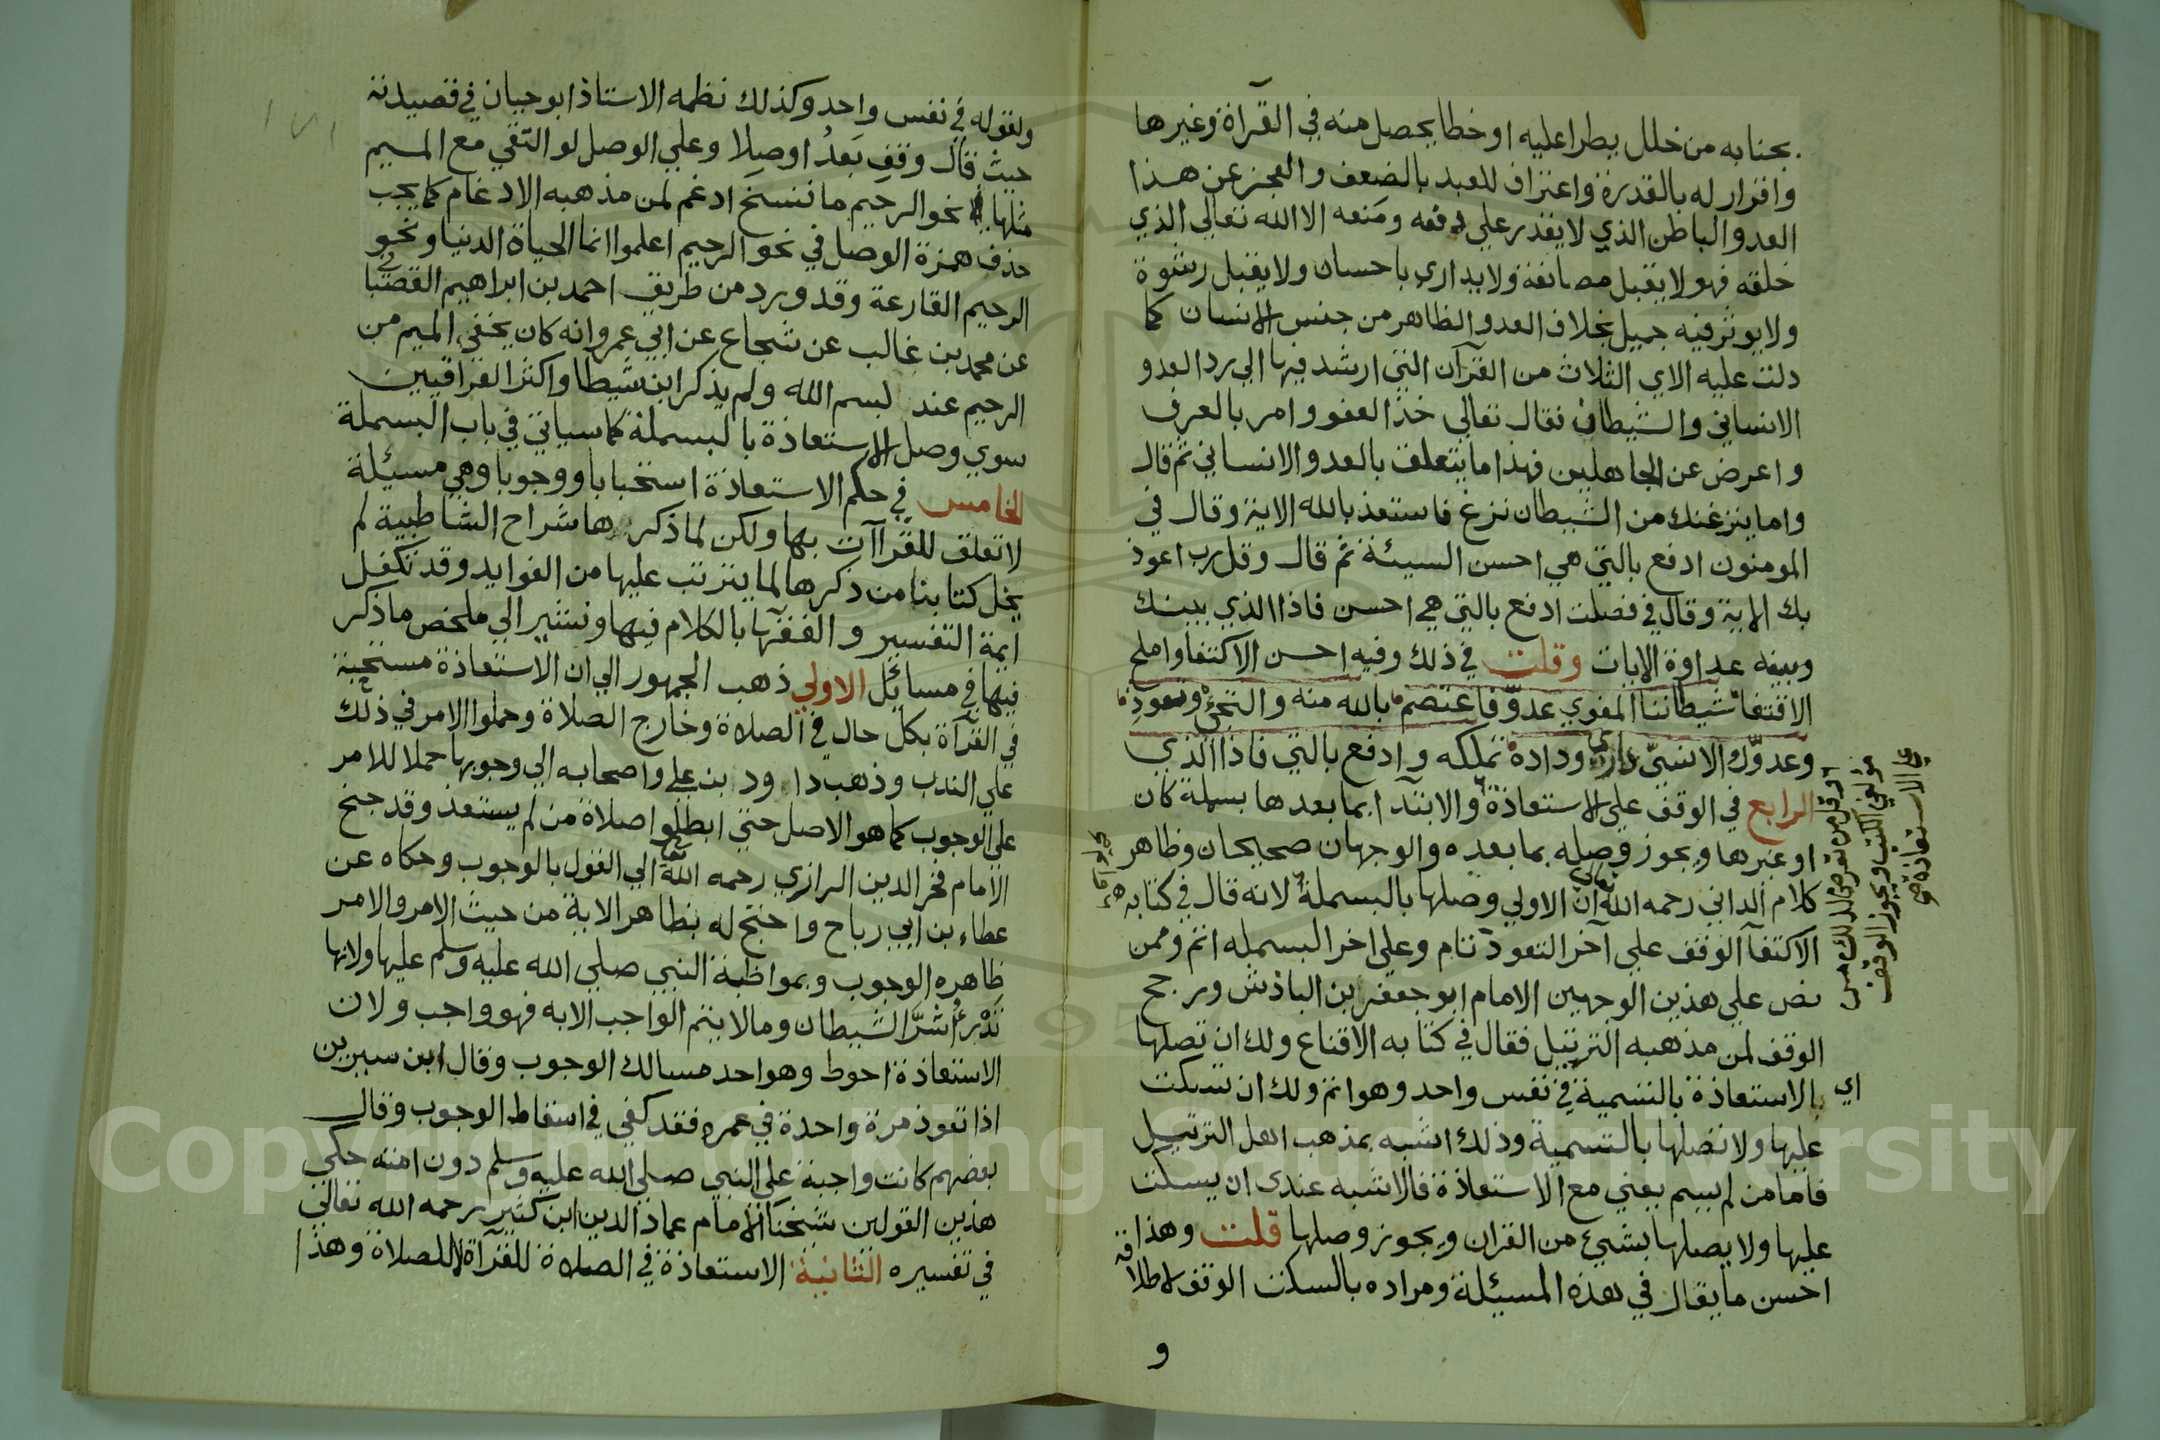 بجنابه من خلل يطرا عليه او خطا يحصل منه في القرآة وغيرها
واقرار له بالقدرة واعتراف للعبد بالضعف والعجز عن هذا
العدو الباطن الذي لا يقدر علي دفعه ومنعه الا الله تعالي الذي
خلقه فهو لا يقبل مصانعة ولا يداري باحسان ولا يقبل رشوة
ولا يوثر فيه جميل بخلاف العدو الظاهر من جنس الانسان كما
دلت عليه الاي الثلاث من القرآن التي ارشد فيها الي رد العدو
الانساني والشيطان فقال تعالي خذ العفو وامر بالعرف
واعرض عن الجاهلين فهذا ما يتعلق بالعدو الانساني ثم قال
واما ينزغنك من الشيطان نزغ فاستعذ بالله الاية وقال في
المومنون ادفع بالتي هي احسن السيئة ثم قال وقل رب اعوذ
بك الاية وقال في فصلت ادفع بالتي هي احسن فاذا الذي بينك
وبينه عداوة الايات وقلت في ذلك وفيه احسن الاكتفا واملح
الاقتفا شيطاننا المغوي عدو فاعتصم بالله منه والتجئ وتعوذ
وعدوك الانسي دار وداده تملكه وادفع بالتي فاذا الذي
الرابع في الوقف علي الاستعاذة والابتدآ بما بعدها بسملة كان
او غيرها ويجوز وصله بما بعده والوجهان صحيحان وظاهر
كلام الداني رحمه الله تعالي ان الاولي وصلها بالبسملة لانه قال في كتابه
الاكتفآ الوقف علي آخر التعوذ تام وعلي اخر البسمله اتم وممن
نص علي هذين الوجهين الامام ابو جعفر بن الباذش ورجح
الوقف لمن مذهبه الترتيل فقال في كتابه الاقناع ولك ان تصلها
اي الاستعاذة بالتسمية في نفس واحد وهو اتم ولك ان تسكت
عليها ولا تصلها بالتسمية وذلك اشبه بمذهب اهل الترتيل
فاما من لم يسم يعني مع الاستعاذة فالاشبه عندي ان يسكت
عليها ولا يصلها بشيء من القران ويجوز وصلها قلت وهذا
احسن ما يقال في هذه المسيئلة ومراده بالسكت الوقف لاطلاقه
و
وقل من تعرض لذلك من
مولفي الكتب ويجوز الوقف
علي الاستعاذة
ولقوله في نفس واحد وكذلك نظمه الاستاذ ابو حيان في قصيدته
حيث قال وقف بعد او صلا وعلي الوصل لو التقي مع الميم
مثلها نحو الرحيم ما ننسخ ادغم لمن مذهبه الادغام كما يجب
حذف همزة الوصل في نحو الرحيم اعلموا انما الحياة الدنيا ونحو
الرحيم القارعة وقد ورد من طريق احمد بن ابراهيم القصباني
عن محمد بن غالب عن شجاع عن ابي عمرو انه كان يخفي الميم من
الرحيم عند لبسم الله ولم يذكر ابن شيطا واكثر العراقيين
سوي وصل الاستعاذة بالبسملة كما سياتي في باب البسملة
الخامس في حكم الاستعاذة استحبابا ووجوبا وهي مسيئلة
لا تعلق للقراآت بها ولكن لما ذكرها شراح الشاطبية لم
يخل كتابنا من ذكرها لما يترتب عليها من الفوايد وقد تكفل
ايمة التفسير والفقهآ بالكلام فيها ونشير الي ملخص ما ذكر
فيها في مسائل الاولي ذهب الجمهور الي ان الاستعاذة مستحبة
في القرآة بكل حال في الصلاة وخارج الصلاة وحملوا الامر في ذلك
علي الندب وذهب داود بن علي واصحابه الي وجوبها حملا للامر
علي الوجوب كما هو الاصل حتي ابطلوا صلاة من لم يستعذ وقد جنح
الامام فخر الدين الرازي رحمه الله تعالي الي القول بالوجوب وحكاه عن
عطاء بن ابي رباح واحتج له بظاهر الاية من حيث الامر والامر
ظاهره الوجوب وبمواظبة النبي صلي الله عليه وسلم عليها ولانها
تدرئ شر الشيطان وما لا يتم الواجب الا به فهو واجب ولان
الاستعاذة احوط وهو احد مسالك الوجوب وقال ابن سيرين
اذا تعوذ مرة واحدة في عمره فقد كفي في اسقاط الوجوب وقال
بعضهم كانت واجبة علي النبي صلي الله عليه وسلم دون امته حكي
هذين القولين شيخنا الامام عماد الدين ابن كثير رحمه الله تعالي
في تفسيره الثانية الاستعاذة في الصلاة للقرآة لا للصلاة وهذا
Copyright © King Saud University